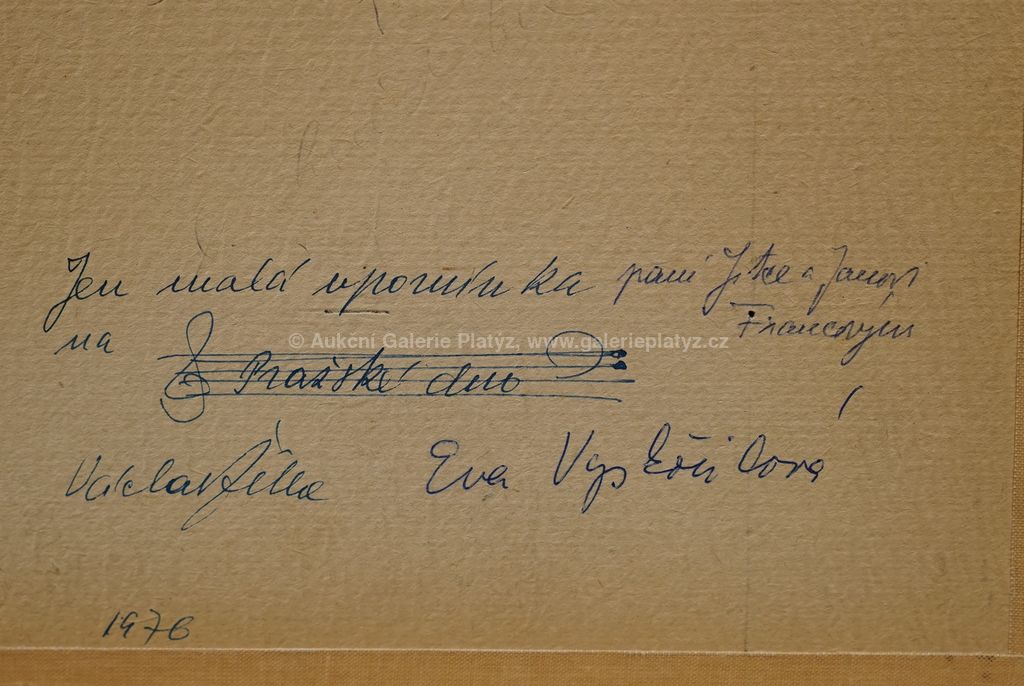 Jen malá upomínka paní Jitce a Janovi
Francovým
na
© Aukcní Galerie Platýz, www.galerieplatyz.cz
Pražské duo
Václav Žilka Eva Vyskočilová
1976